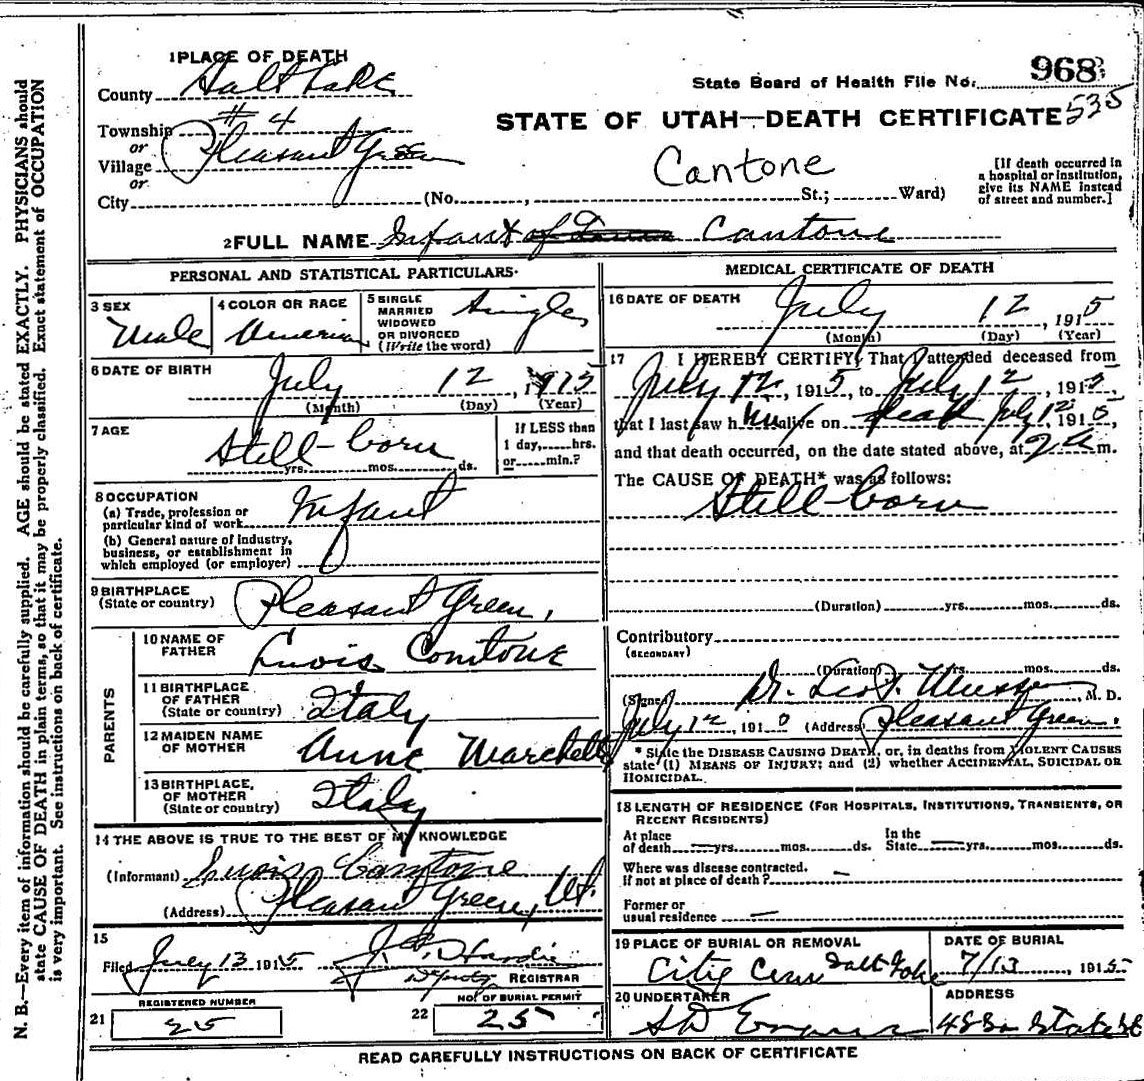 1 PLACE OF DEATH
County Salt Lake
State Board of Health File No. 968
Township # 4
STATE OF UTAH—DEATH CERTIFICATE 535
or
Village Pleasant Green
or
Cantone
[If death occurred in a hospital or institution, give its NAME instead of street and number.]
City (No. St.; Ward)
2 FULL NAME Infant of Cantone
PERSONAL AND STATISTICAL PARTICULARS
3 SEX Male
4 COLOR OR RACE American
5 SINGLE MARRIED WIDOWED OR DIVORCED (Write the word) Single
6 DATE OF BIRTH July 12, 1915
(Month) (Day) (Year)
7 AGE Still-born
yrs. mos. ds.
If LESS than 1 day, hrs. or min.?
8 OCCUPATION
(a) Trade, profession or particular kind of work Infant
(b) General nature of industry, business, or establishment in which employed (or employer)
9 BIRTHPLACE (State or country) Pleasant Green,
PARENTS
10 NAME OF FATHER Luois Comtone
11 BIRTHPLACE OF FATHER (State or country) Italy
12 MAIDEN NAME OF MOTHER Anne
13 BIRTHPLACE, OF MOTHER (State or country) Italy
14 THE ABOVE IS TRUE TO THE BEST OF MY KNOWLEDGE
(Informant) Luois Cantone
(Address) Pleasant Green, Ut.
15
Filed July 13 1915 J. Hardie
Deputy REGISTRAR
REGISTERED NUMBER
21 25
NO. OF BURIAL PERMIT
22 25
MEDICAL CERTIFICATE OF DEATH
16 DATE OF DEATH July 12, 1915
(Month) (Day) (Year)
17 I HEREBY CERTIFY, That I attended deceased from
July 12, 1915, to July 12, 1915,
that I last saw h im alive on dead July 12 1915,
and that death occurred, on the date stated above, at 2 a m.
The CAUSE OF DEATH* was as follows:
Still-born
(Duration) yrs. mos. ds.
Contributory
(SECONDARY)
(Duration) yrs. mos. ds.
(Signed) Dr. Leo. M. D.
July 12, 1910 (Address) Pleasant Green.
* State the DISEASE CAUSING DEATH, or, in deaths from VIOLENT CAUSES
state (1) MEANS OF INJURY; and (2) whether ACCIDENTAL, SUICIDAL OR
HOMICIDAL.
18 LENGTH OF RESIDENCE (FOR HOSPITALS, INSTITUTIONS, TRANSIENTS, OR
RECENT RESIDENTS)
At place of death yrs. mos. ds. In the State yrs. mos. ds.
Where was disease contracted.
If not at place of death?
Former or
usual residence
19 PLACE OF BURIAL OR REMOVAL
City Cem Salt Lake
DATE OF BURIAL
7/13, 1915
20 UNDERTAKER
S D
ADDRESS
48 So State St
READ CAREFULLY INSTRUCTIONS ON BACK OF CERTIFICATE
N. B.—Every item of information should be carefully supplied. AGE should be stated EXACTLY. PHYSICIANS should
state CAUSE OF DEATH in plain terms, so that it may be properly classified. Exact statement of OCCUPATION
is very important. See instructions on back of certificate.